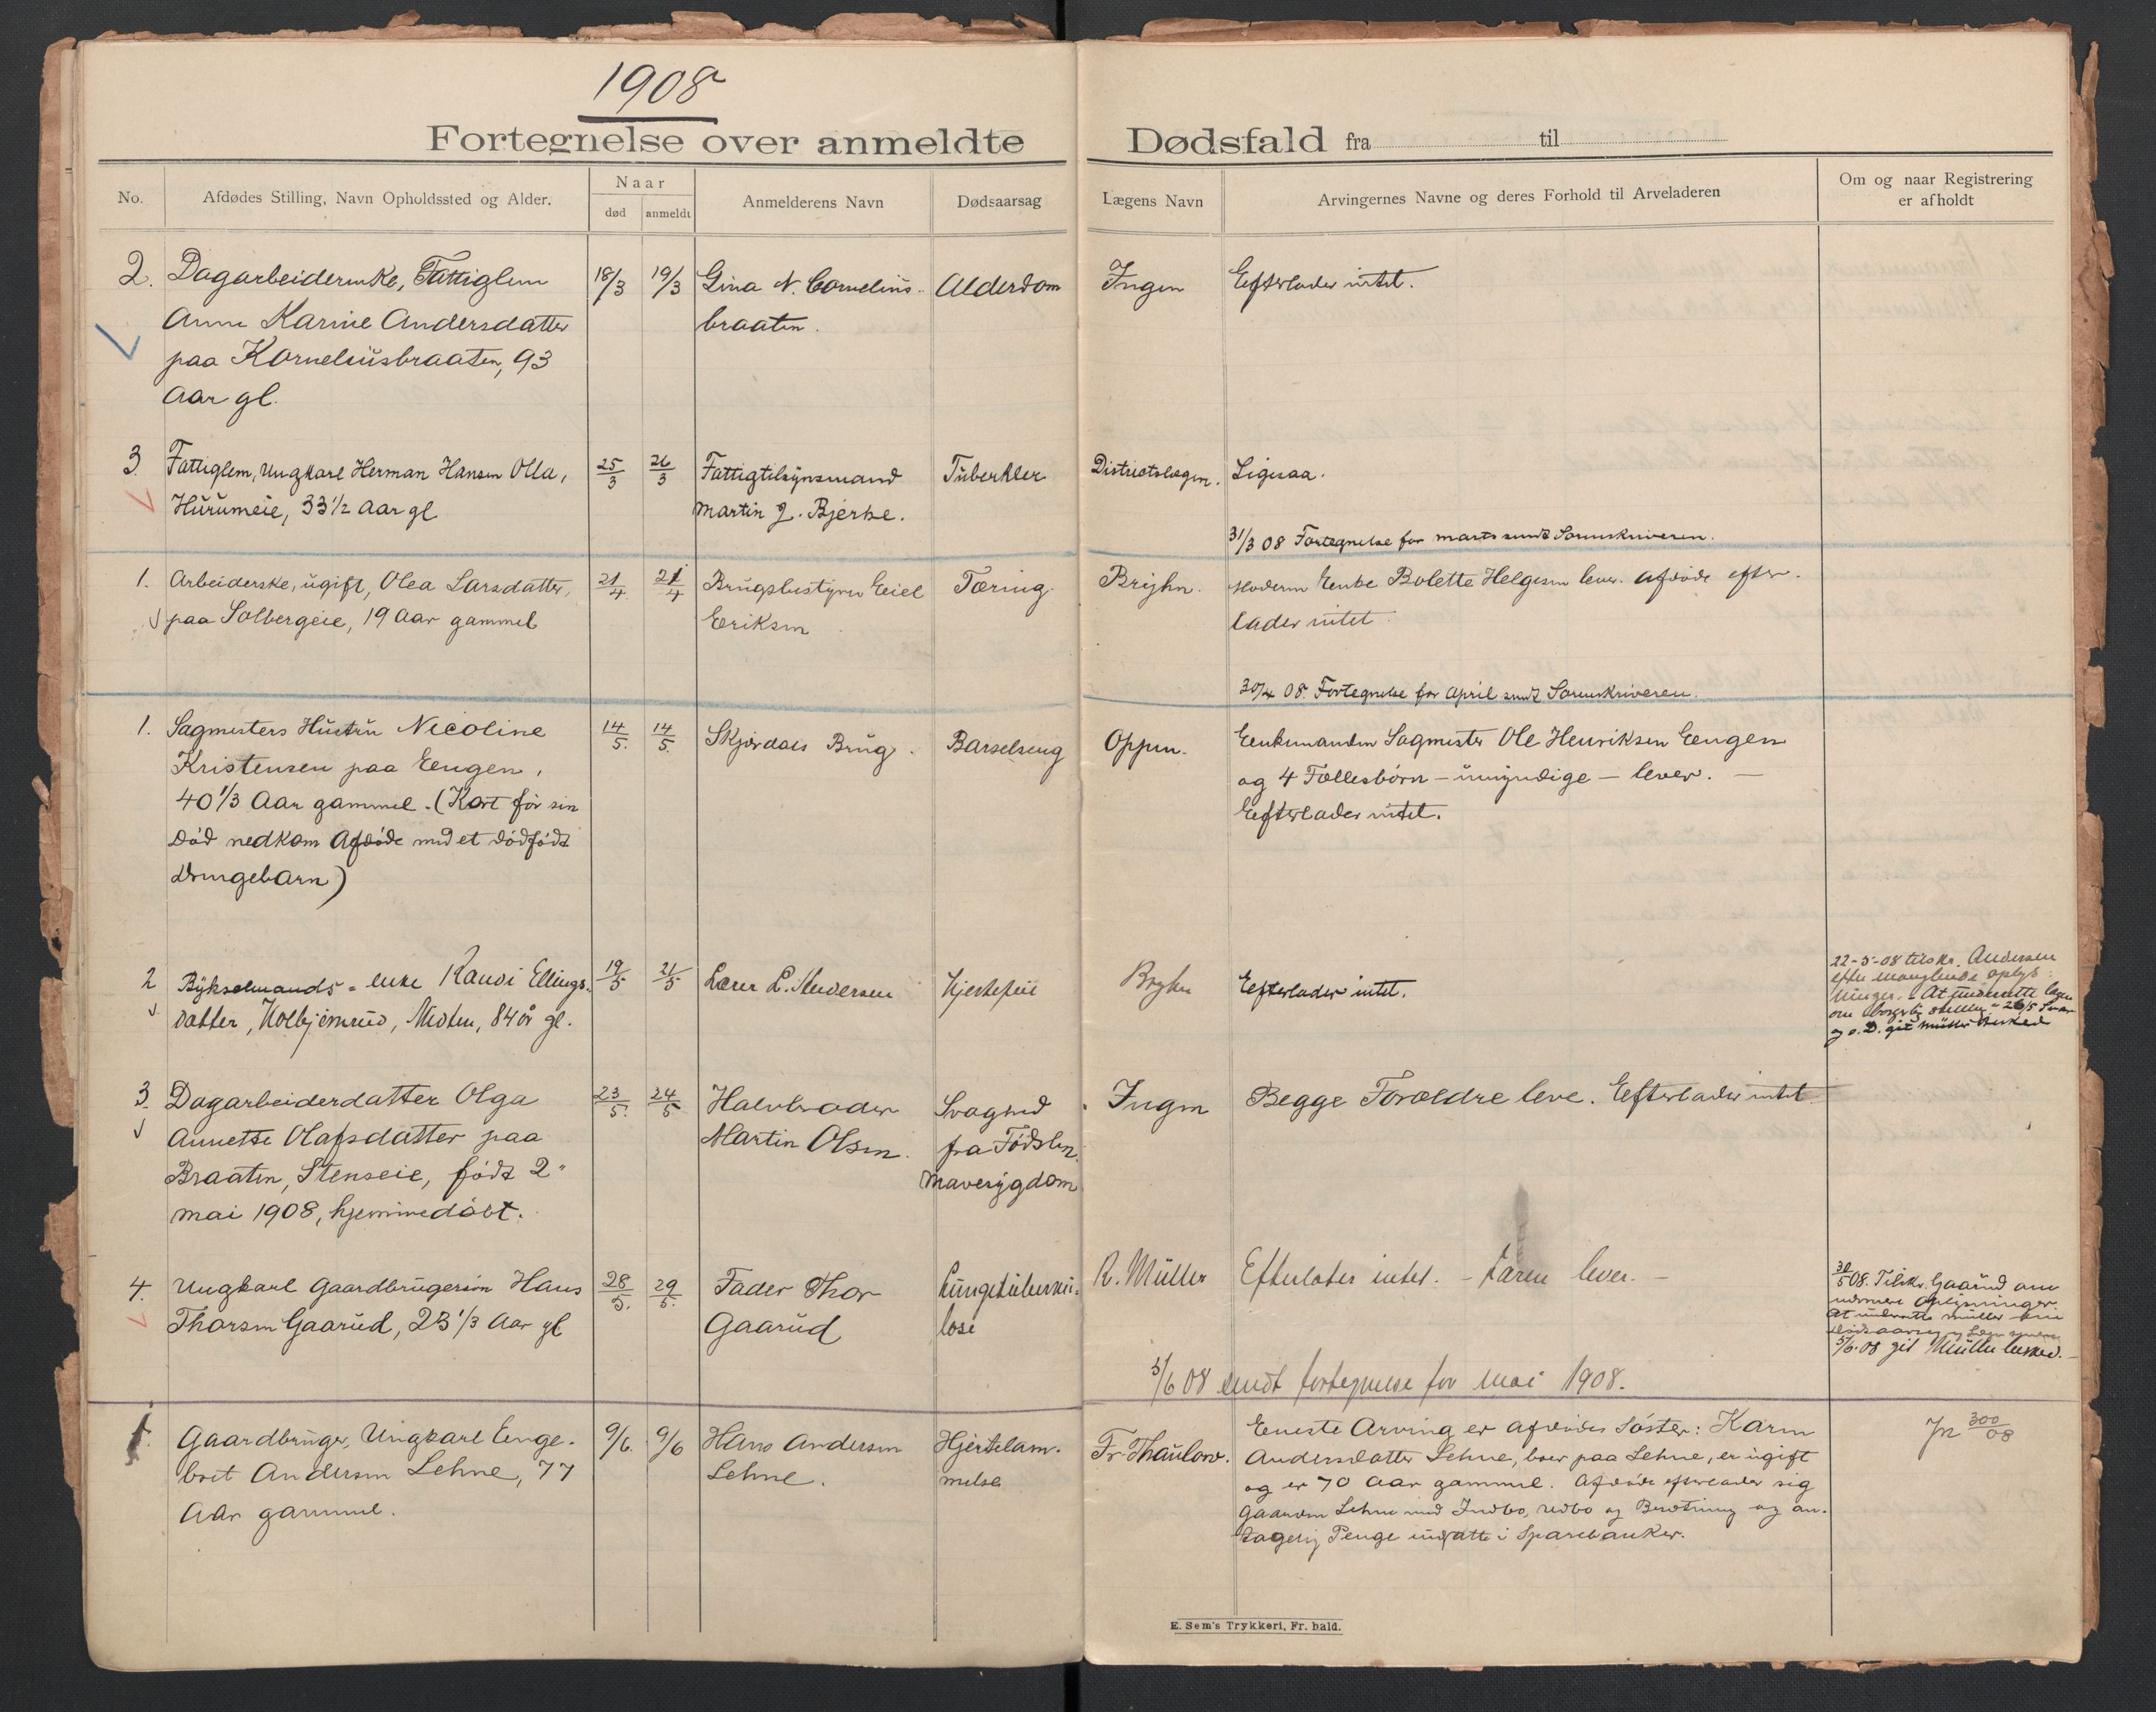 1908
Fortegnelse over anmeldte Dødsfald fra til
No.
Afdødes Stilling, Navn Opholdssted og Alder.
Naar
død
anmeldt
Anmelderens Navn
Dødsaarsag
Lægens Navn
Arvingernes Navne og deres Forhold til Arveladeren
Om og naar Registrering
er afholdt
2. Dagarbeiderenke, Fattiglem
Anne Karine Andersdatter
paa Korneliusbraaten, 93
Aar gl.
18/3 19/3
Gina N. Cornelius-
braaten.
Alderdom
Ingen
Efterlader intet.
3. Fattiglem, Ungkarl Herman Hansen Olla,
Hurumeie, 33 1/2 Aar gl
25/3 26/3
Fattigtilsynsmand
Martin J. Bjerke.
Tuberkler
Districtslægen.
Ligesaa.
31/3 08 Fortegnelse for marts sendt Sorenskriveren.
1. Arbeiderske, ugift, Olea Larsdatter,
paa Solbergeie, 19 Aar gammel
21/4 21/4
Brugsbestyrer Eiel
Eriksen
Tæring
Brijhn.
Moderen Enke Bolette Helgesen lever. Afdøde efter-
lader intet.
30/4 08. Fortegnelse for April sendt Sorenskriveren.
1. Sagmesters Hustru Nicoline
Kristensen paa Eengen,
40 1/3 Aar gammel. (Kort før sin
Død nedkom Afdøde med et dødfødt
Drengebarn)
14/5. 14/5.
Skjørdals Brug.
Barselseng
Oppen.
Enkemanden Sagmester Ole Henriksen Eengen
og 4 Fællesbørn - umyndige - lever. -
Efterlader intet.
2 Bykselmands- enke Randi Ellings-
datter, Kolbjørnrud, Modum, 84 år gl.
19/5 21/5
Lærer L. Andersen
Hjertefeil
Bryhn
Efterlader intet.
22-5-08 tilskr. Andersen
efter manglende oplys-
ninger. - At underrette lægen
26/5 Svar
3. Dagarbeiderdatter Olga
Annette Olafsdatter paa
Braaten, Stenseie, født 2"
mai 1908, hjemmedøbt.
23/5. 24/5
Halvbroder
Martin Olsen.
Svaghed
fra Fødslen.
Mavesygdom
Ingen
Begge Forældre leve. Efterlader intet.
4. Ungkarl Gaardbrugersøn Hans
Thorsen Gaarud, 23 1/3 Aar gl
28/5. 29/5.
Fader Thor
Gaarud
Lungetuberku-
lose
R. Müller
Efterlater intet. - Faren lever. -
30/5 08. Tilskr. Gaarud om
nærmere Oplysninger.
At underrette Müller om
5/6 08 git Müller besked. -
5/6 08 sendt fortegnelse for Mai 1908.
1. Gaardbruger, Ungkarl Enge-
bret Andersen Lehne, 77
Aar gammel.
9/6. 9/6
Hans Andersen
Lehne.
Hjertelam-
melse
Fr. Thaulow.
Eneste Arving er afdødes Søster: Karen
Andersdatter Lehne, boer paa Lehne, er ugift
og er 70 Aar gammel. Afdøde efterlader sig
Gaarden Lehne med Indbo, Udbo og Besætning og an-
tagelig Penge indsatte i Sparebanker.
Jn 300/08
E. Sem's Trykkeri, Fr. hald.